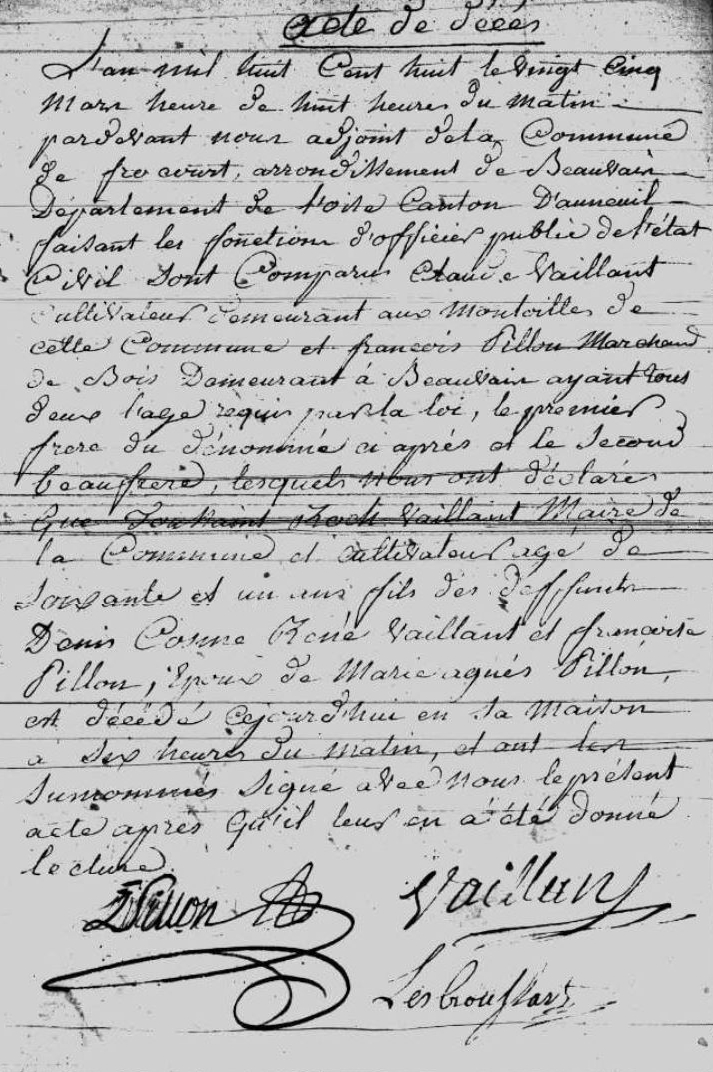 acte de décés
L'an mil huit Cent huit le vingt cinq
Mars heure de huit heures du matin
pardevant nous adjoint dela Commune
de frocourt, arrondissement de Beauvais
Département de l'oise Canton D'auneuil
faisant les fonctions d'officier public de l'état
Civil sont Comparus Claude Vaillant
Cultivateur demeurant aux Montoilles de
cette Commune et francois Pillon Marchand
de Bois Demeurant à Beauvais ayant tous
deux l'age requis par la loi, le premier
frere du dénommé ci aprés et le second
beaufrere, lesquels nous ont déclarés
Que Toussaint Roch Vaillant Maire de
la Commune et cultivateur agé de
soixante et un ans fils des deffunts
Denis Cosme René Vaillant et francoise
Pillon, Epoux de Marie agnés Pillon,
est décédé cejourd'hui en sa maison
a six heures du matin, et ont les
surnommés signé avec nous le présent
acte aprés qu'il leur en a été donné
lecture
Pillon Vaillant